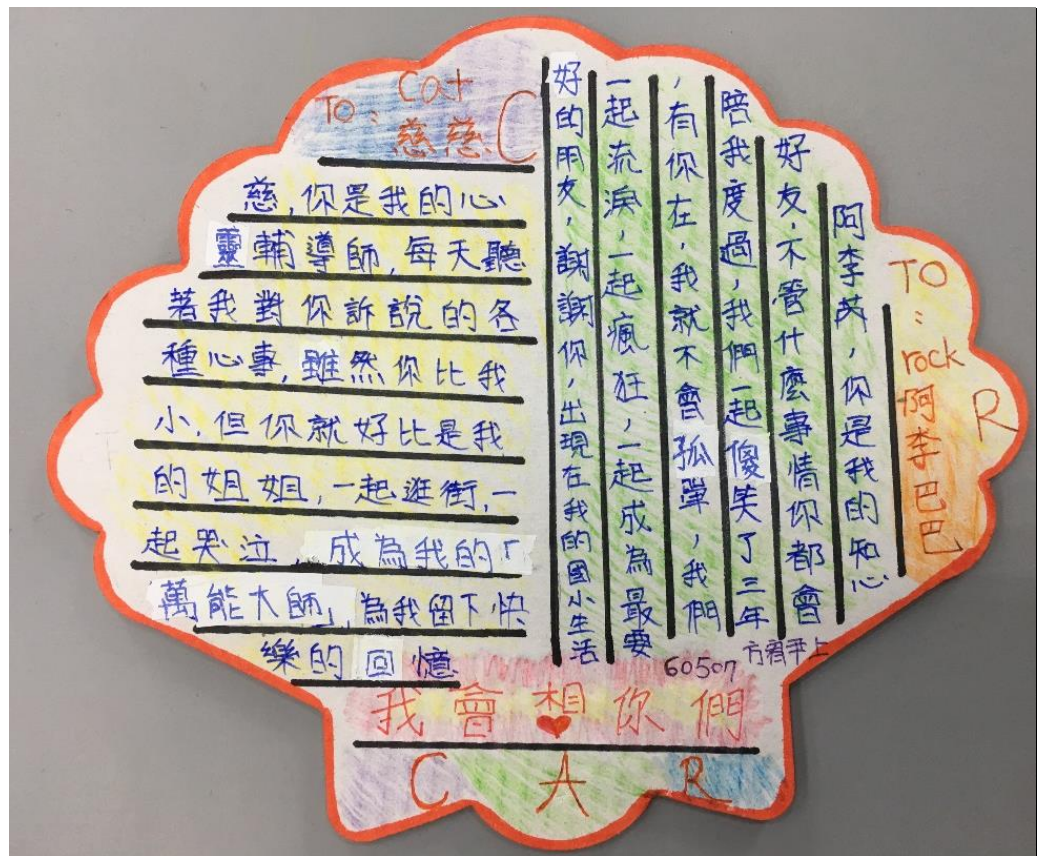 TO: Cat
慈慈 C
慈,你是我的心
靈輔導師,每天聽
著我對你訴說的各
種心事,雖然你比我
小,但你就好比是我
的姐姐,一起逛街,一
起哭泣,成為我的「
萬能大師」為我留下快
樂的回憶
R
TO:rock阿李巴巴
阿李芮,你是我的知心
好友,不管什麼事情你都會
陪我度過,我們一起傻笑了三年
,有你在,我就不會孤單,我們
一起流淚,一起瘋狂,一起成為最要
好的朋友,謝謝你,出現在我的國小生活
60507 方 上
我會想你們
C A R